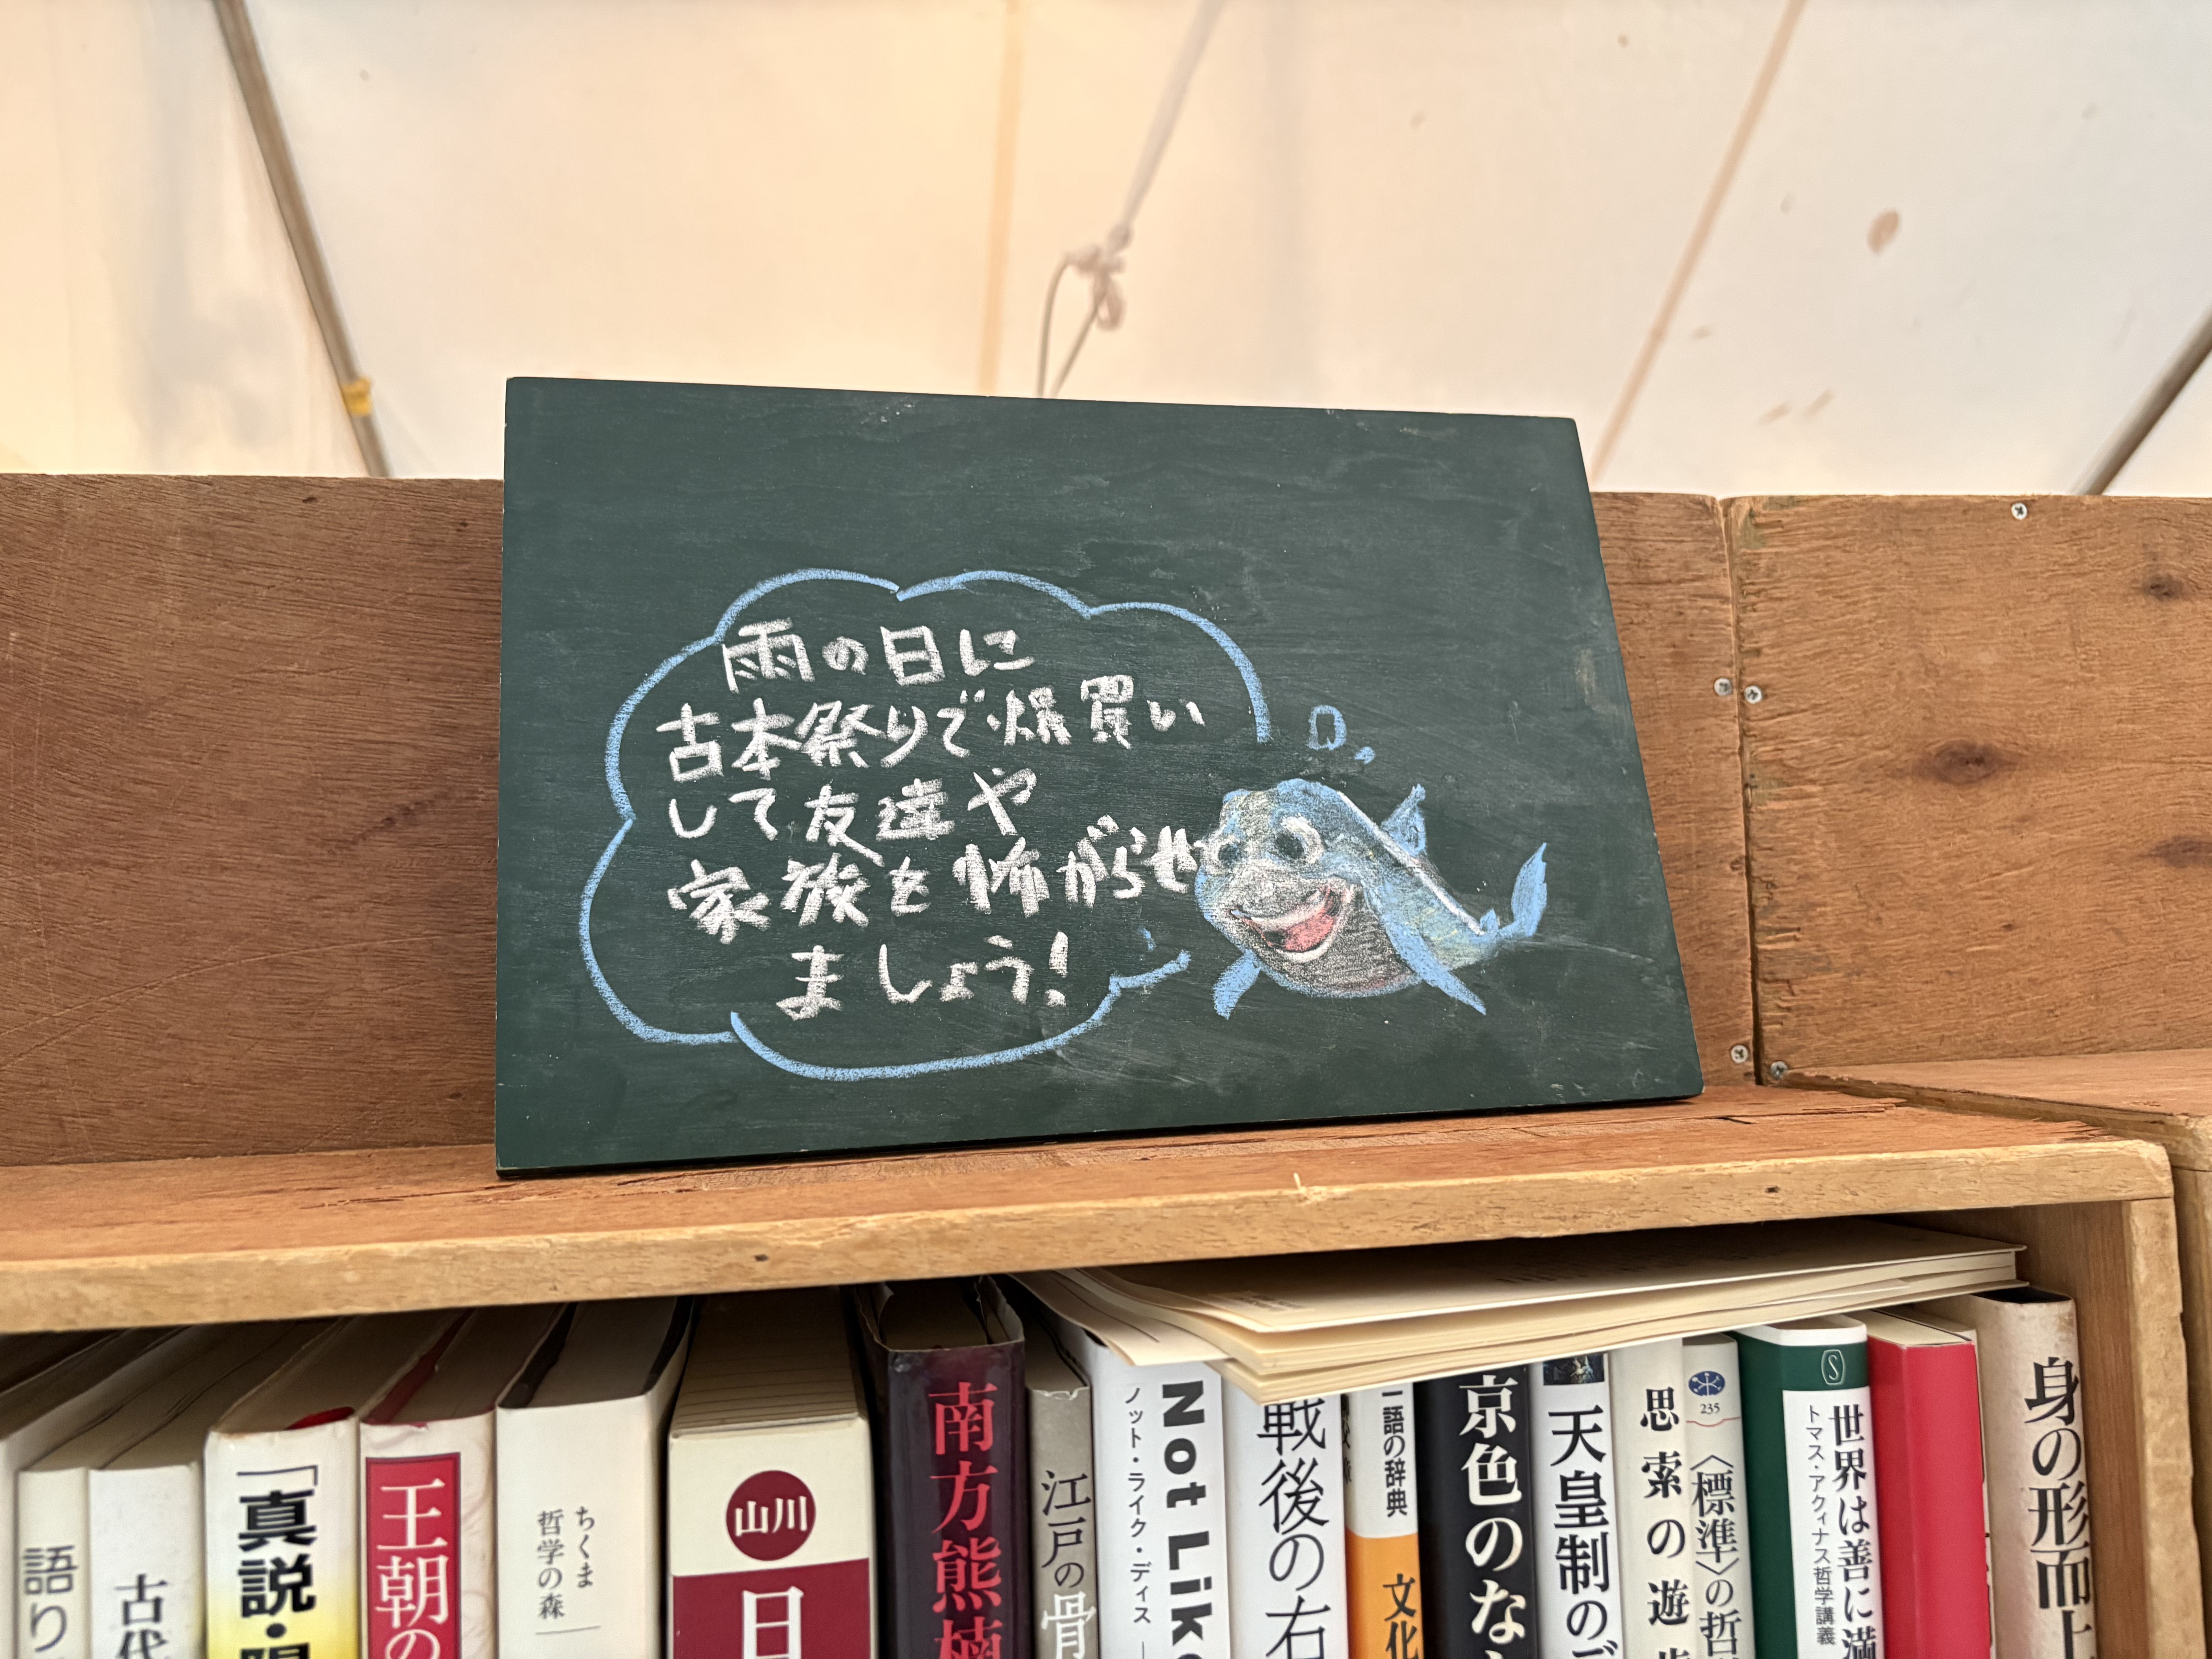 雨の日に
古本祭りで爆買い
して友達や
家族を怖がらせ
ましょう!
語り
古代
「真説・
王朝の
ちくま
哲学の森
山川
日
南方熊楠
江戸の骨
ノット・ライク・ディス
Not Like
戦後の右
一語の辞典
文化
京色のな
天皇制のデ
思索の遊歩
235
〈標準〉の哲
S
世界は善に満
トマス・アクィナス哲学講義
身の形而上